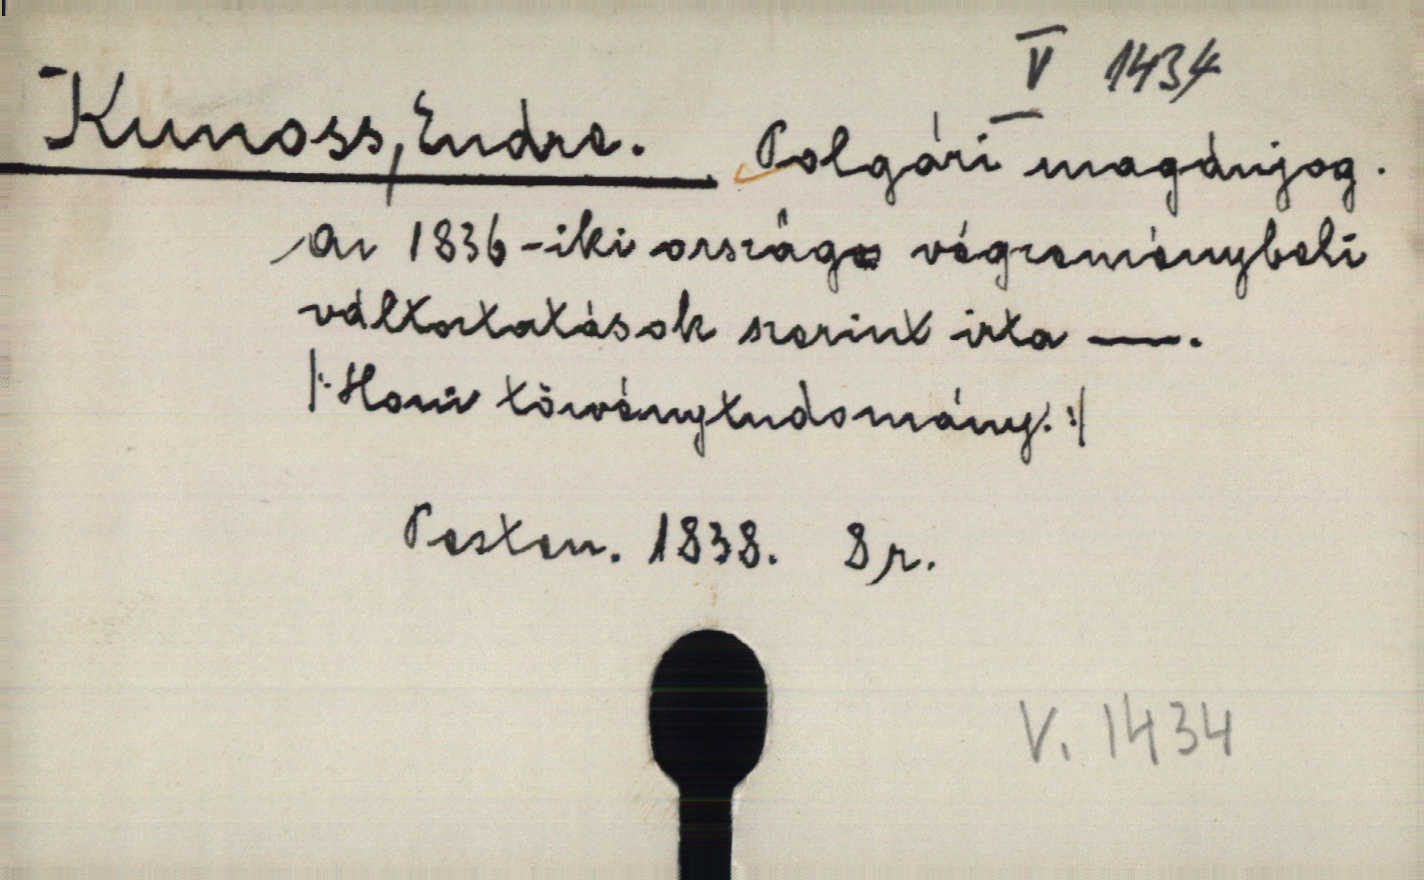 V 1434
Kunoss, Endre. Polgári magánjog.
Az 1836-ikiország végzeménybeli
változtatások szerint irta —.
/: Honi törvénytudomány. :/
Pesten. 1838. 8 r.
V. 1434